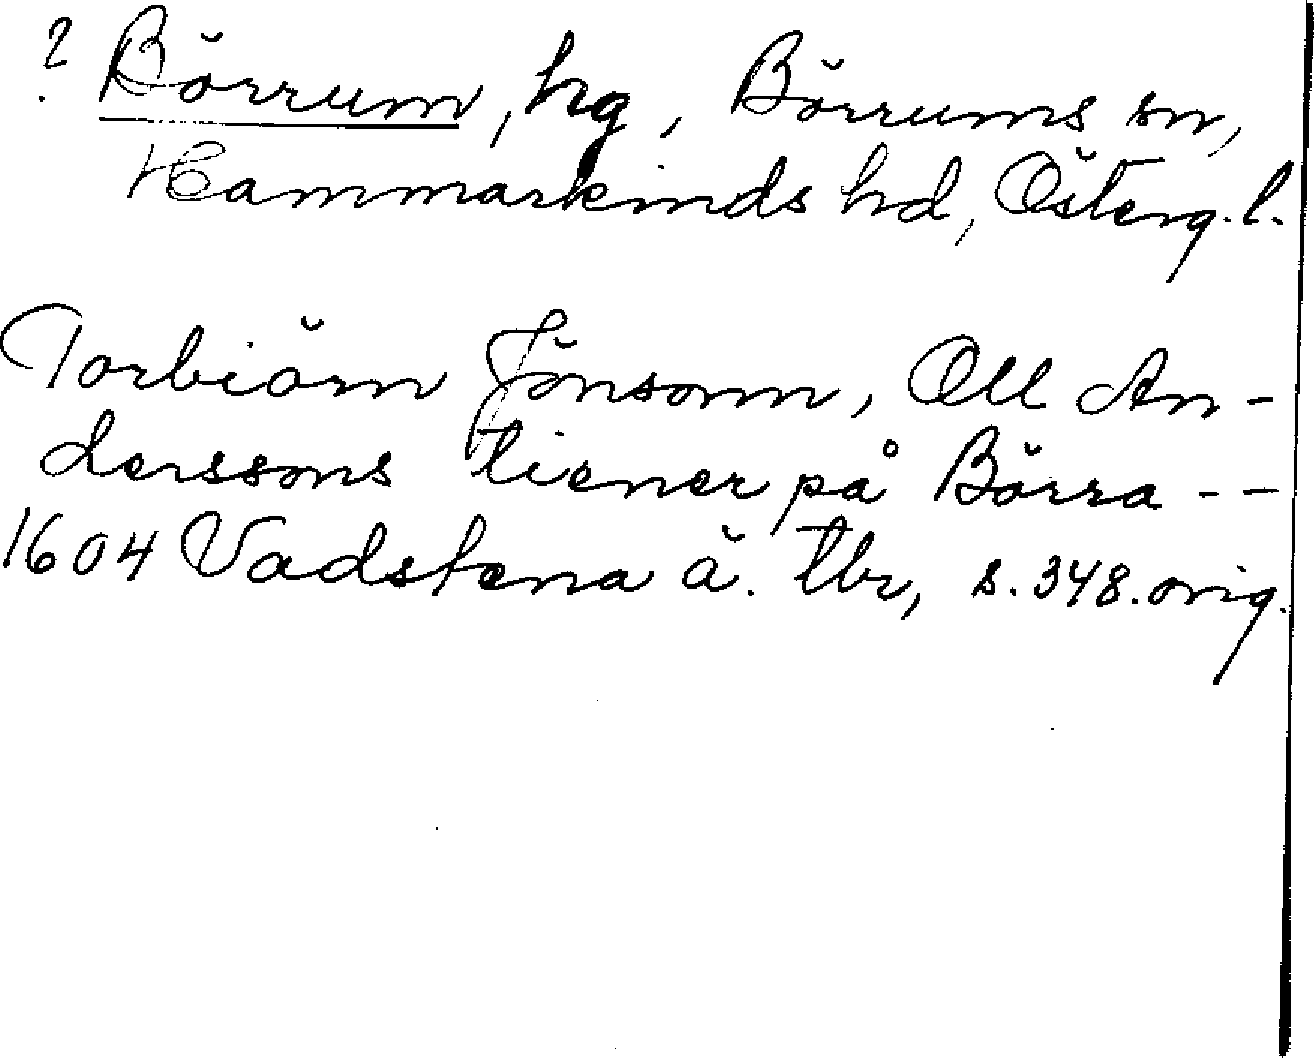 ? Börrum, hg, Börrums sn,
Hammarkinds hd, Österg.l.
Torbiörn Jönsonn, Oll An-
derssons tiener på Börra --
1604 Vadstena ä. tbr, s.348.orig.